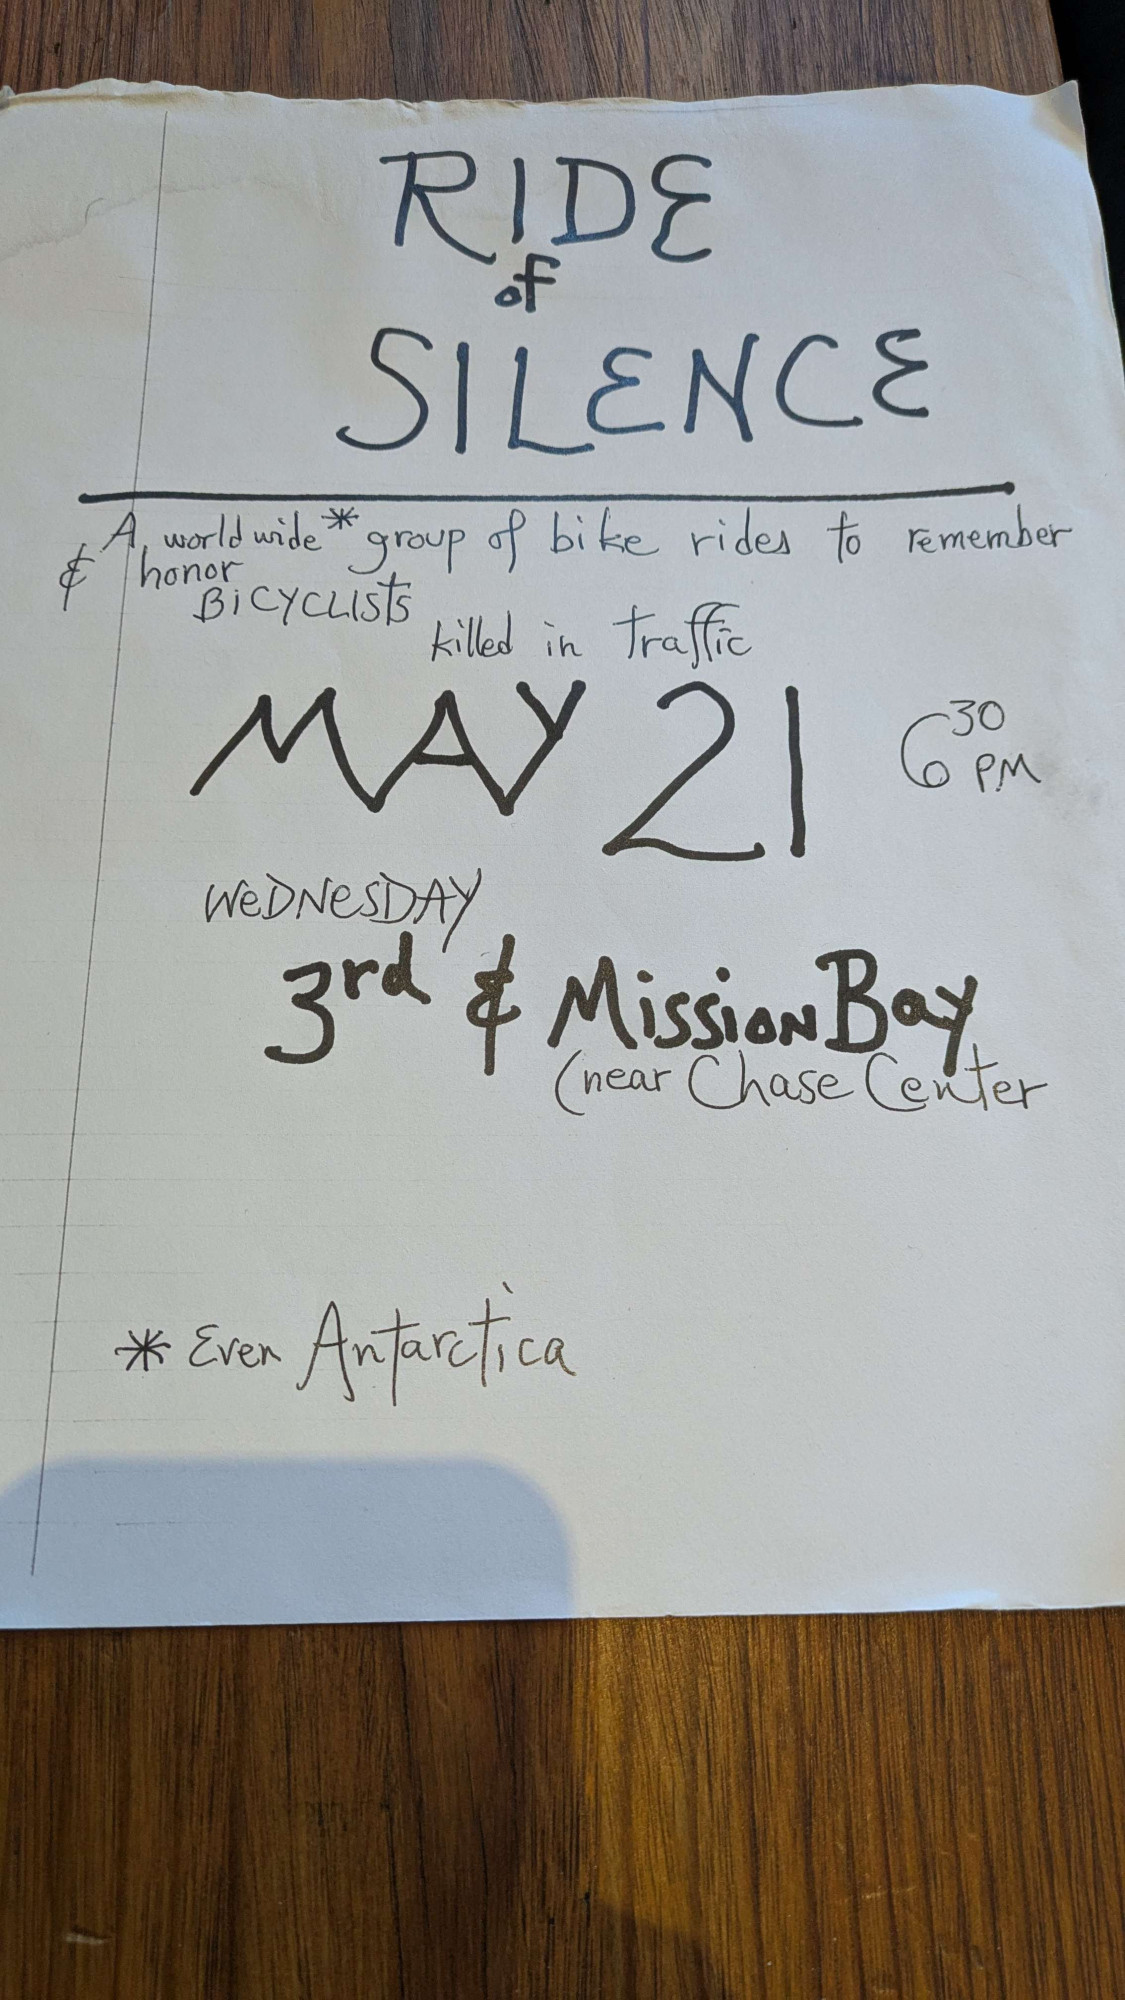 RIDE
of
SILENCE
A worldwide* group of bike rides to remember
& honor
BiCYCLISTS
killed in traffic
MAY 21 6 30 PM
WeDNesDAY
3rd & MissioN Bay
(near Chase Center
* Even Antarctica